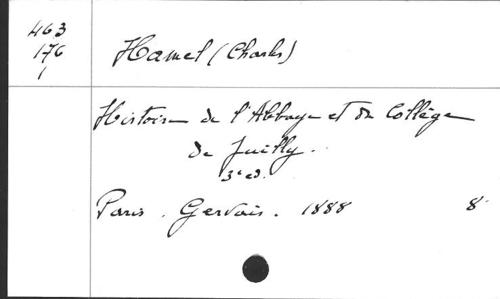 463
176
1
Hamel (Charles)
Histoire de l'Abbaye et du Collège
de Juilly.
3e ed.
Paris. Gervais. 1888 8°